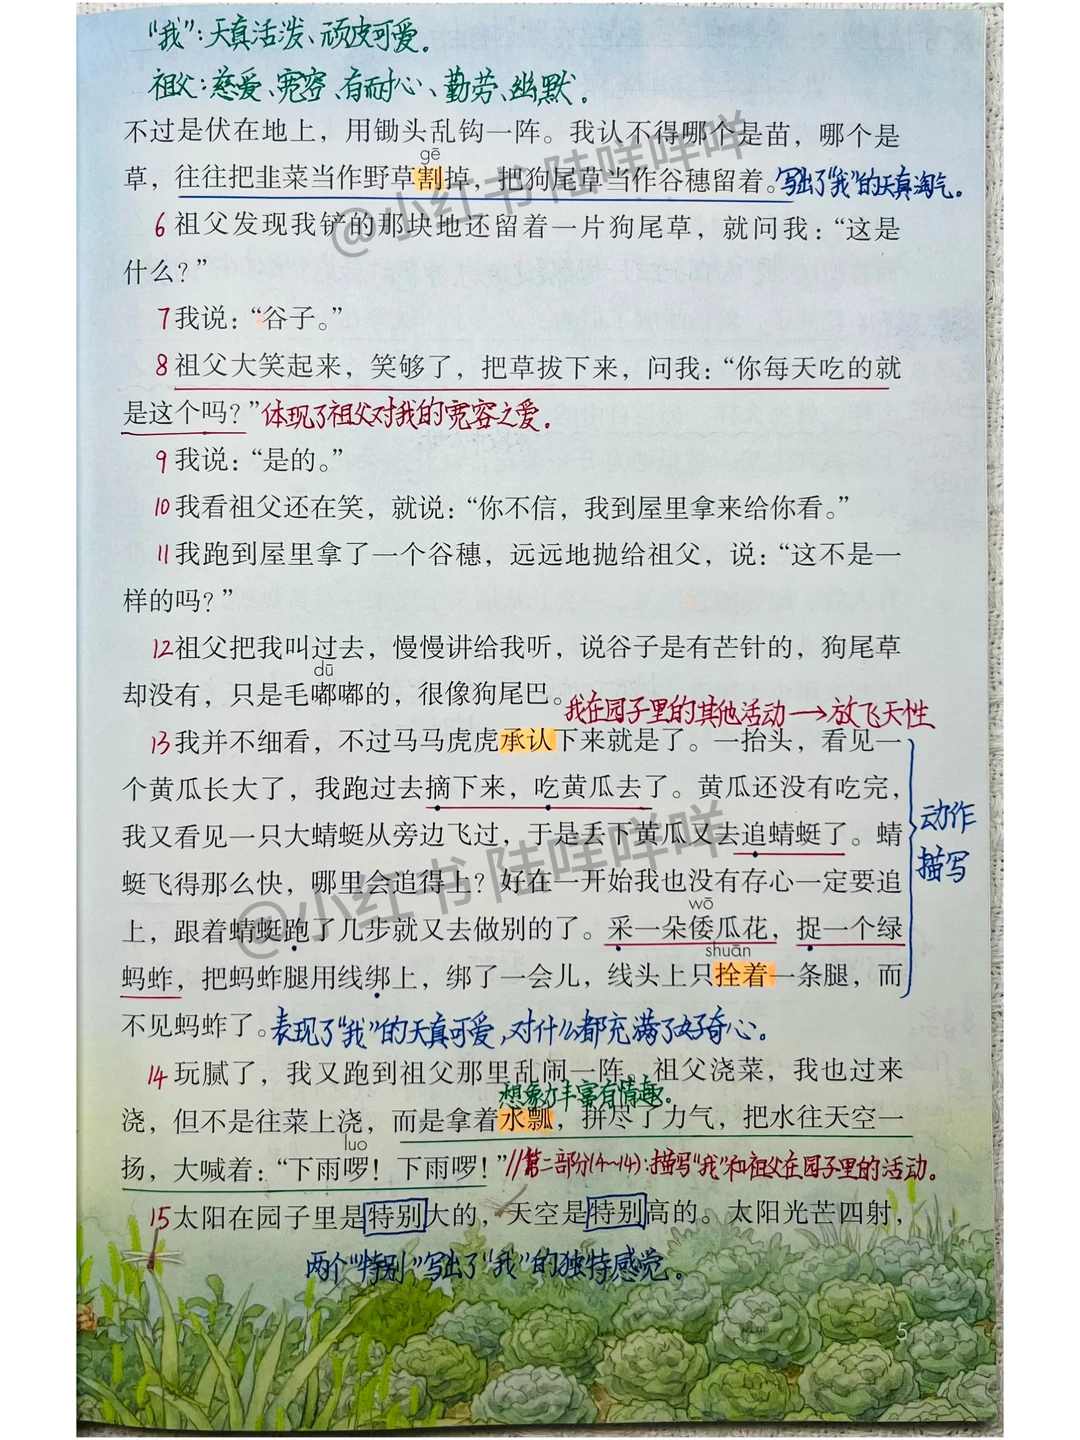 “我”：天真活泼、顽皮可爱。
祖父：慈爱、宽容、有耐心、勤劳、幽默。
不过是伏在地上，用锄头乱钩一阵。我认不得哪个是苗，哪个是
gē
草，往往把韭菜当作野草割掉，把狗尾草当作谷穗留着。写出了“我”的天真淘气。
@小红书 陆咩咩咩
6 祖父发现我铲的那块地还留着一片狗尾草，就问我：“这是
什么？”
7 我说：“谷子。”
8 祖父大笑起来，笑够了，把草拔下来，问我：“你每天吃的就
是这个吗？”体现了祖父对我的宽容之爱。
9 我说：“是的。”
10 我看祖父还在笑，就说：“你不信，我到屋里拿来给你看。”
11 我跑到屋里拿了一个谷穗，远远地抛给祖父，说：“这不是一
样的吗？”
12 祖父把我叫过去，慢慢讲给我听，说谷子是有芒针的，狗尾草
dū
却没有，只是毛嘟嘟的，很像狗尾巴。
我在园子里的其他活动→放飞天性
13 我并不细看，不过马马虎虎承认下来就是了。一抬头，看见一
个黄瓜长大了，我跑过去摘下来，吃黄瓜去了。黄瓜还没有吃完，
我又看见一只大蜻蜓从旁边飞过，于是丢下黄瓜又去追蜻蜓了。蜻
蜓飞得那么快，哪里会追得上？好在一开始我也没有存心一定要追
动作
描写
@小红书 陆咩咩咩
wō
上，跟着蜻蜓跑了几步就又去做别的了。采一朵倭瓜花，捉一个绿
shuān
蚂蚱，把蚂蚱腿用线绑上，绑了一会儿，线头上只拴着一条腿，而
不见蚂蚱了。表现了“我”的天真可爱，对什么都充满了好奇心。
14 玩腻了，我又跑到祖父那里乱闹一阵。祖父浇菜，我也过来
想象力丰富有情趣。
浇，但不是往菜上浇，而是拿着水瓢，拼尽了力气，把水往天空一
luo
扬，大喊着：“下雨啰！下雨啰！”//第二部分(4~14)：描写“我”和祖父在园子里的活动。
15 太阳在园子里是特别大的，天空是特别高的。太阳光芒四射，
两个“特别”写出了“我”的独特感觉。
5